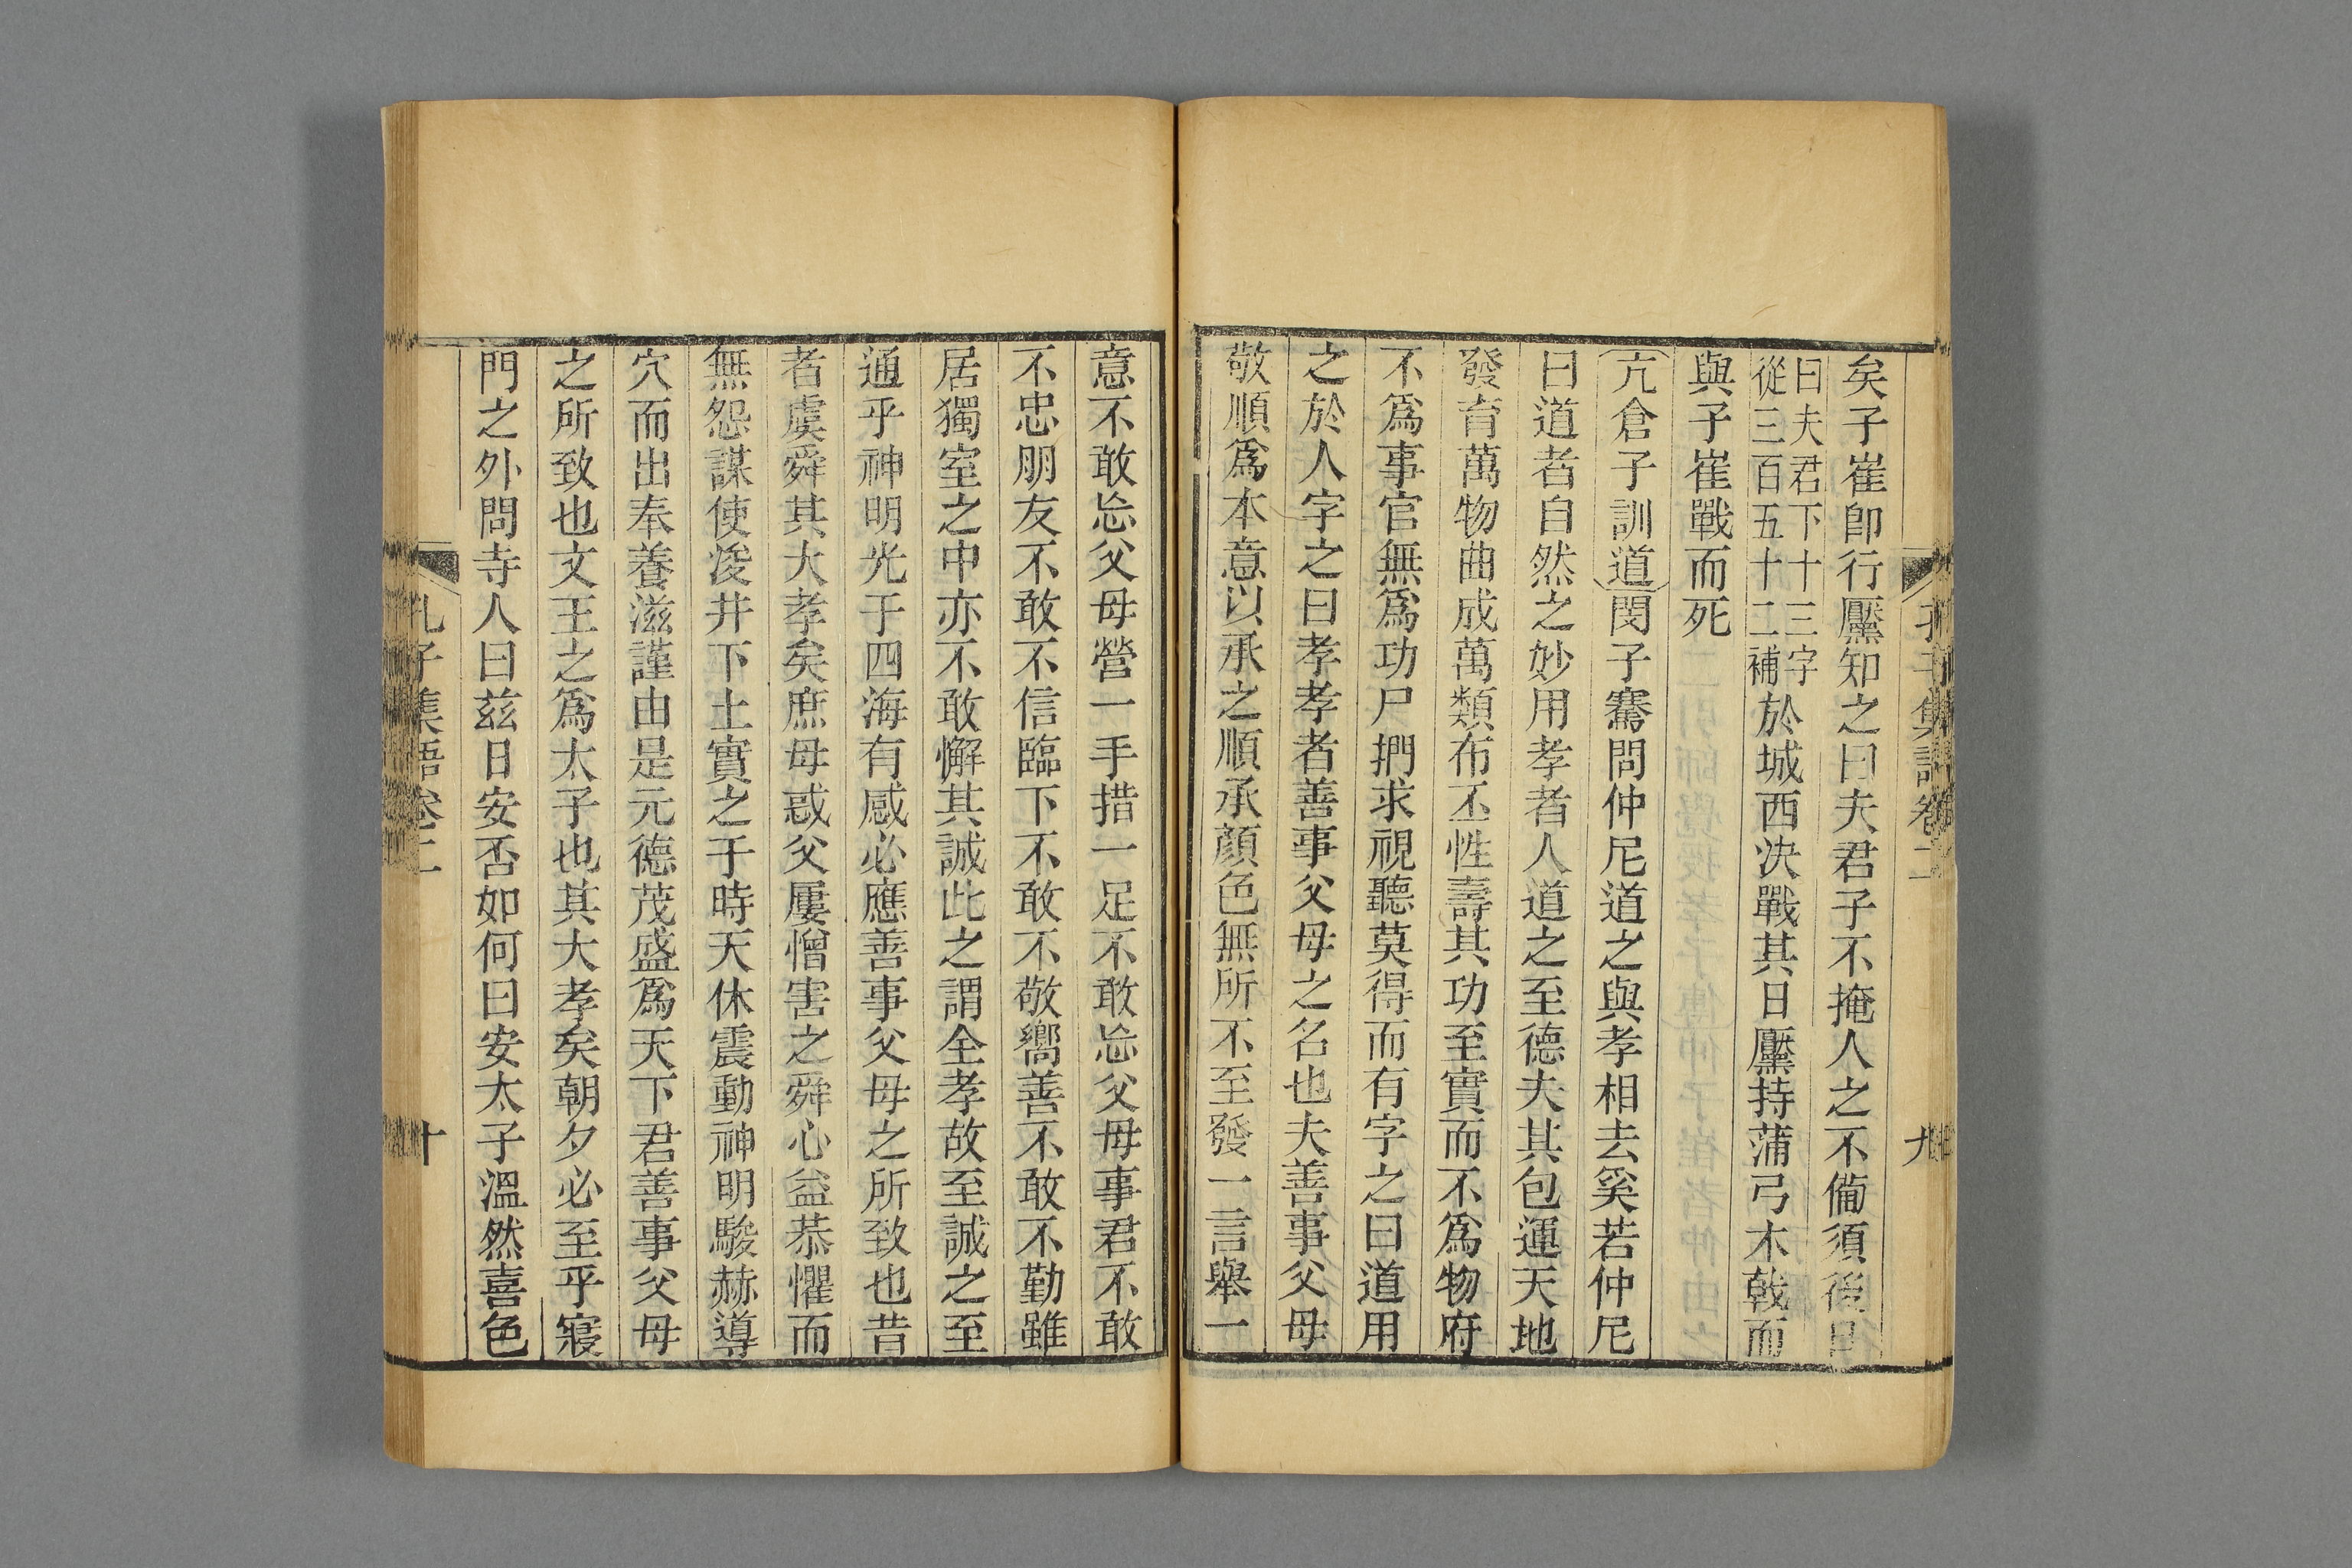 孔子集語卷二 九
矣子崔卽行黶知之曰夫君子不掩人之不備須後日
曰夫君下十三字
從三百五十二補
於城西決戰其日黶持蒲弓木戟而
與子崔戰而死
亢倉子訓道閔子騫問仲尼道之與孝相去奚若仲尼
曰道者自然之妙用孝者人道之至德夫其包運天地
發育萬物曲成萬類布丕性壽其功至實而不爲物府
不爲事官無爲功尸捫求視聽莫得而有字之曰道用
之於人字之曰孝孝者善事父母之名也夫善事父母
敬順爲本意以承之順承顏色無所不至發一言舉一
意不敢忘父母營一手措一足不敢忘父母事君不敢
不忠朋友不敢不信臨下不敢不敬嚮善不敢不勤雖
居獨室之中亦不敢懈其誠此之謂全孝故至誠之至
通乎神明光于四海有感必應善事父母之所致也昔
者虞舜其大孝矣庶母惑父屢憎害之舜心益恭懼而
無怨謀使浚井下土實之于時天休震動神明駿赫導
穴而出奉養滋謹由是元德茂盛爲天下君善事父母
之所致也文王之爲太子也其大孝矣朝夕必至乎寢
門之外問寺人曰兹日安否如何曰安太子溫然喜色
孔子集語卷二 十